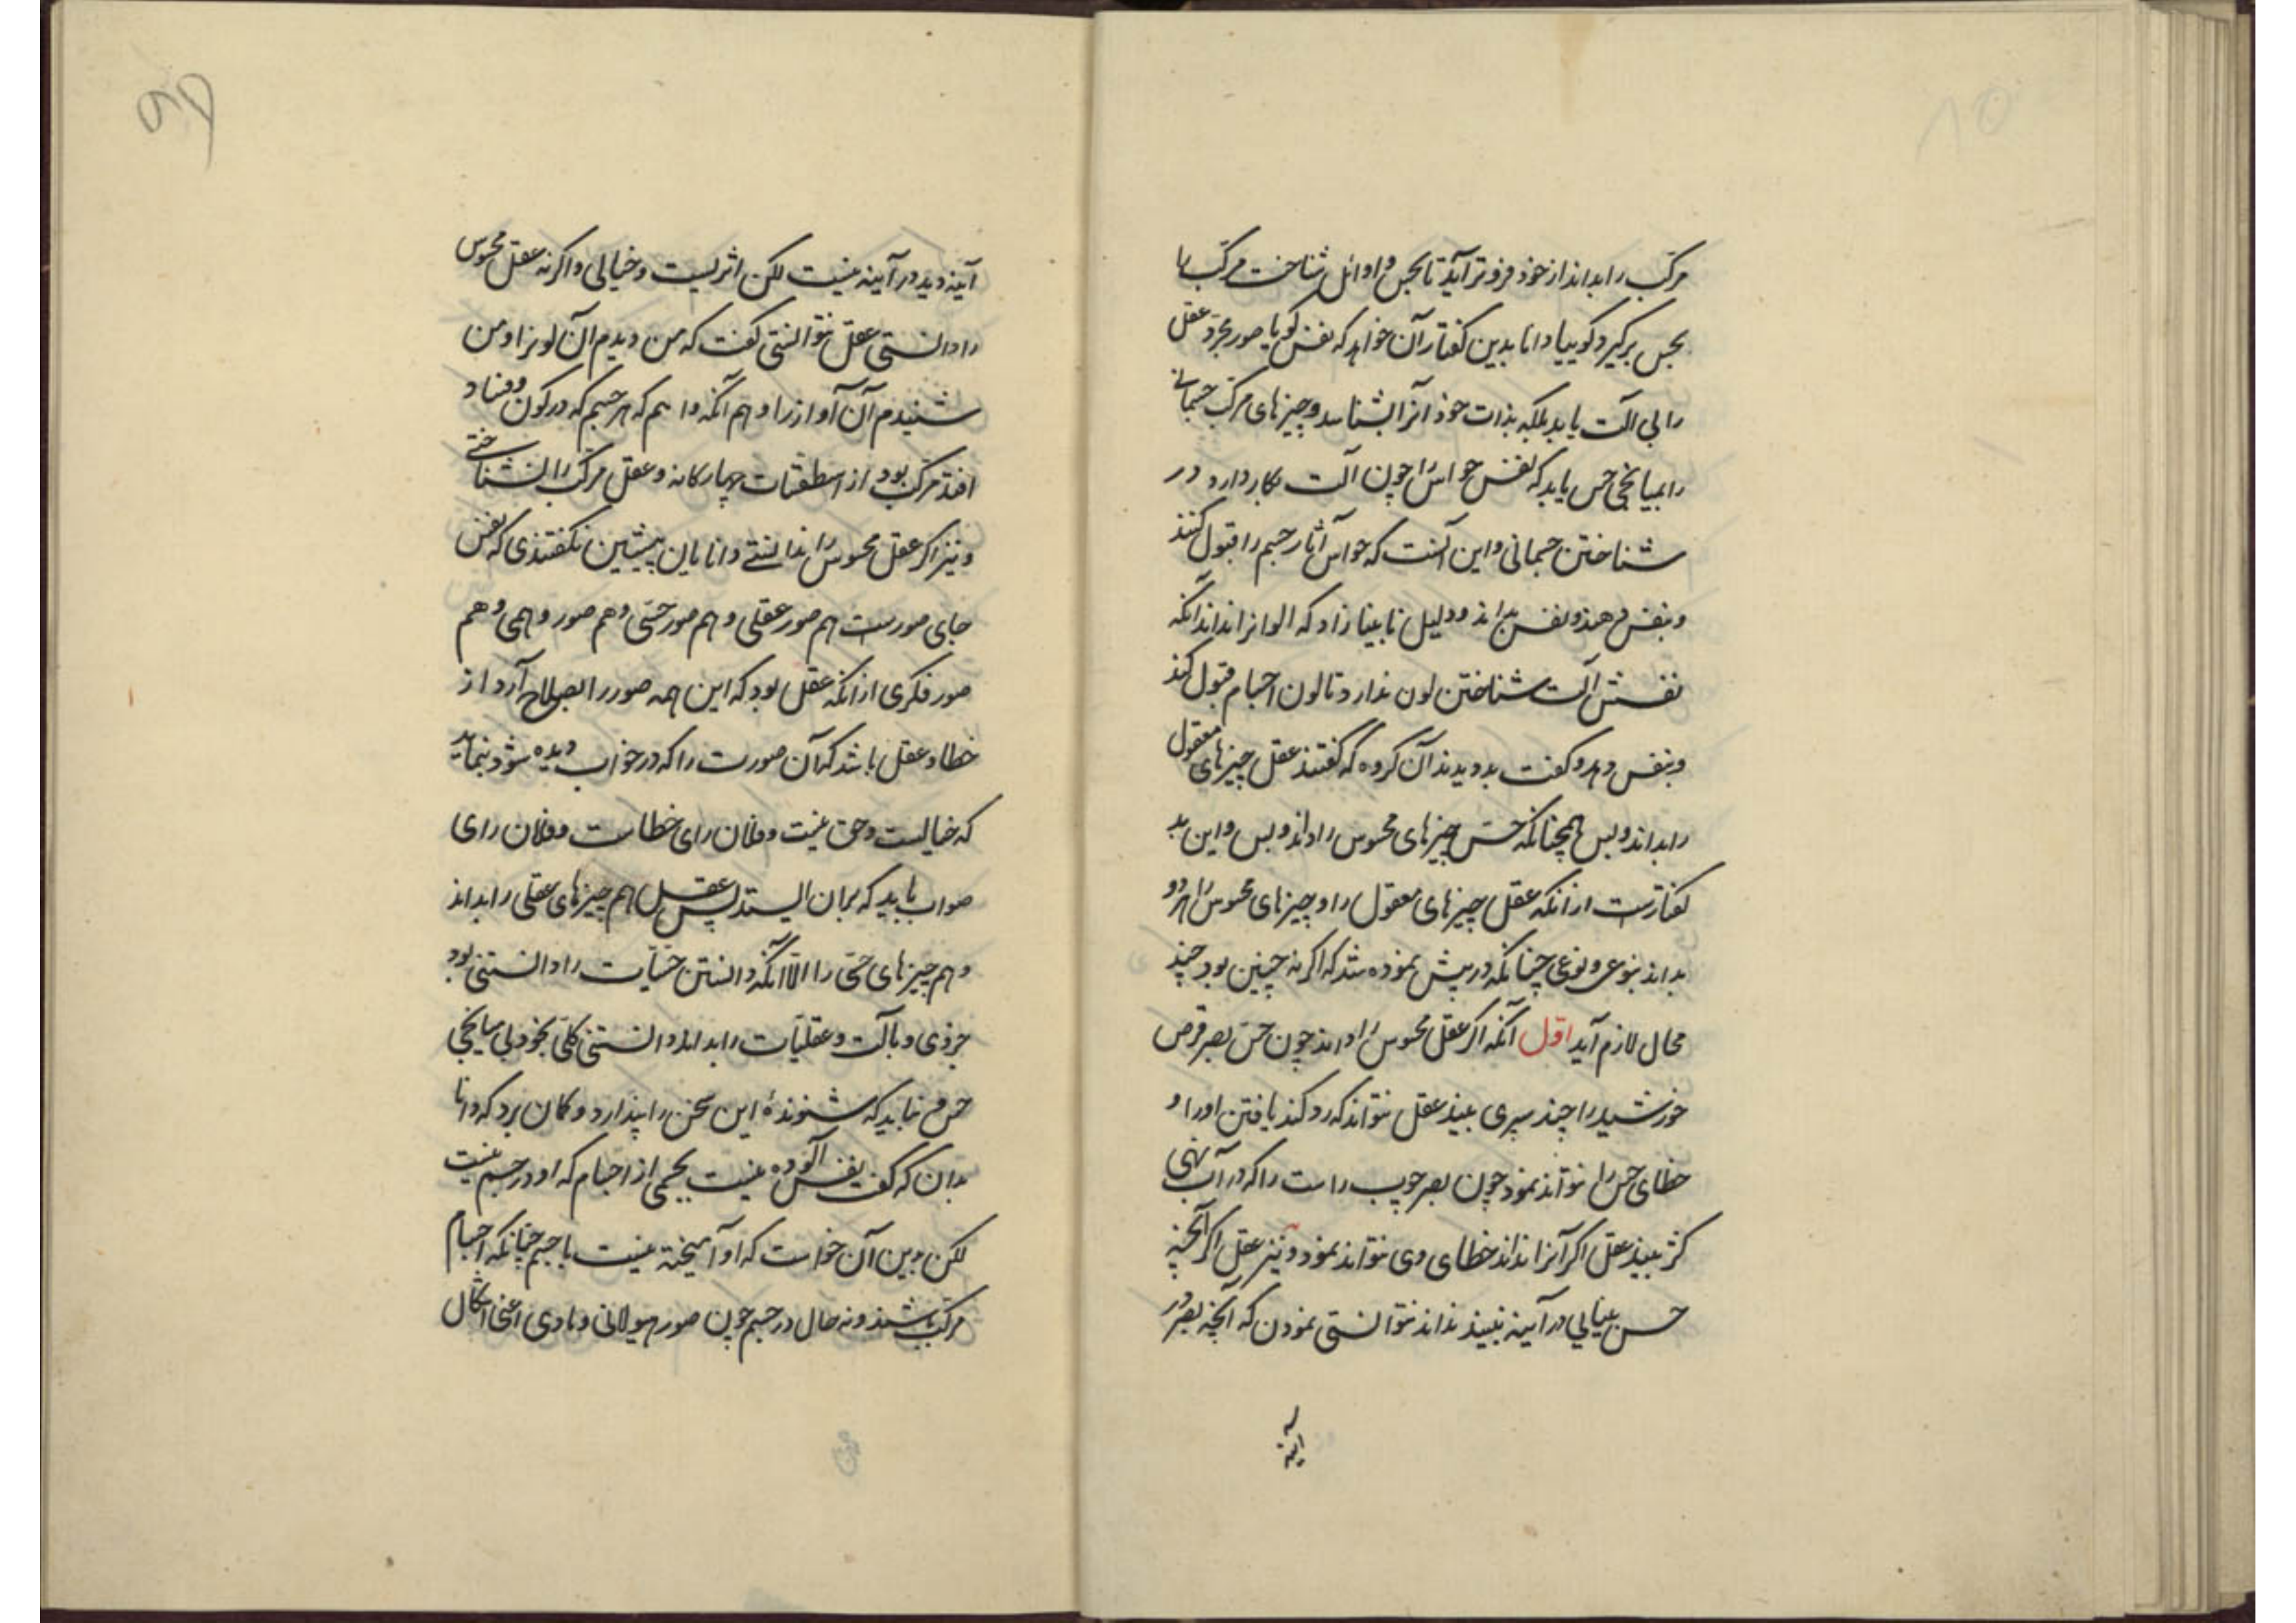 مرکب را بداند از خود فروتر آید تا بحس و اوائل شناخت مرکب را
بحس برگیرد گوییا دانا بدین گفتار آن خواهد که نفس گویا صور مجرد عقل
را بی آلت یابد بلکه بذات خود آنرا بشناسد و چیزهای مرکب جسمانی
را بمیانجی حس یابد که نفس حواس را چون آلت بکار دارد در
شناختن جسمانی و این آنست که حواس آثار جسم را قبول کنند
و بنفس دهند و نفس بداند و دلیل نابینا زاد که الوانرا نداند آنکه
نفسش آلت شناختن لون ندارد تا لون اجسام قبول کند
و بنفس دهد و گفت بد دیدند آن گروه که گفتند عقل چیزهای معقول
را بداند و بس همچنانکه حس چیزهای محسوس را داند و بس و این بد
گفتارست از آنکه عقل چیزهای معقول را و چیزهای محسوس را هر دو
بداند بنوعی و نوعی چنانکه در پیش نموده شد که اگر نه چنین بود چند
محال لازم آید اول آنکه اگر عقل محسوس را نداند چون حس بصر قرص
خورشید را چند سپری بیند عقل نتواند که رد کند یافتن او را و
خطای حس را نتواند نمود چون بصر چوب راست را که در آب نهی
کژ بیند عقل اگر آنرا نداند خطای وی نتواند نمود و نیز عقل اگر آنچه
حس بینایی در آیینه ببیند نداند نتوانستی نمودن که آنچه بصر در
آینه
آینه دید در آینه نیست لکن اثریست و خیالی و اگر نه عقل محسوس
را دانستی عقل نتوانستی گفت که من دیدم آن لونرا و من
شنیدم آن آواز را و هم آنکه دانیم که هر جسم که در کون و فساد
افتد مرکب بود از اسطقسات چهارگانه و عقل مرکب را نشناختی
و نیز اگر عقل محسوس را ندانستی دانایان پیشین نگفتندی که نفس
جای صورست هم صور عقلی و هم صور حسی و هم صور وهمی و هم
صور فکری از آنکه عقل بود که این همه صور را بصلاح آرد از
خطا و عقل باشد که آن صورت را که در خواب دیده شود بنماید
که خیالست و حق نیست و فلان رای خطاست و فلان رای
صواب باید که بران ایستد پس عقل هم چیزهای عقلی را بداند
و هم چیزهای حسی را الّا آنکه دانستن حسّیات را دانستنی بود
جزوی و بآلت و عقلیّات را بداند دانستنی کلّی بخود بی میانجی
حس و نباید که شنوندهٔ این سخن را پندارد و گمان برد که دانا
بدان که گفت نفس آلوده نیست بجسمی از اجسام که او در جسم نیست
لکن بدین آن خواست که او آمیخته نیست با جسم چنانکه اجسام
مرکب باشند و نه حال در جسم چون صور هیولانی و مادی اعنی اشکال